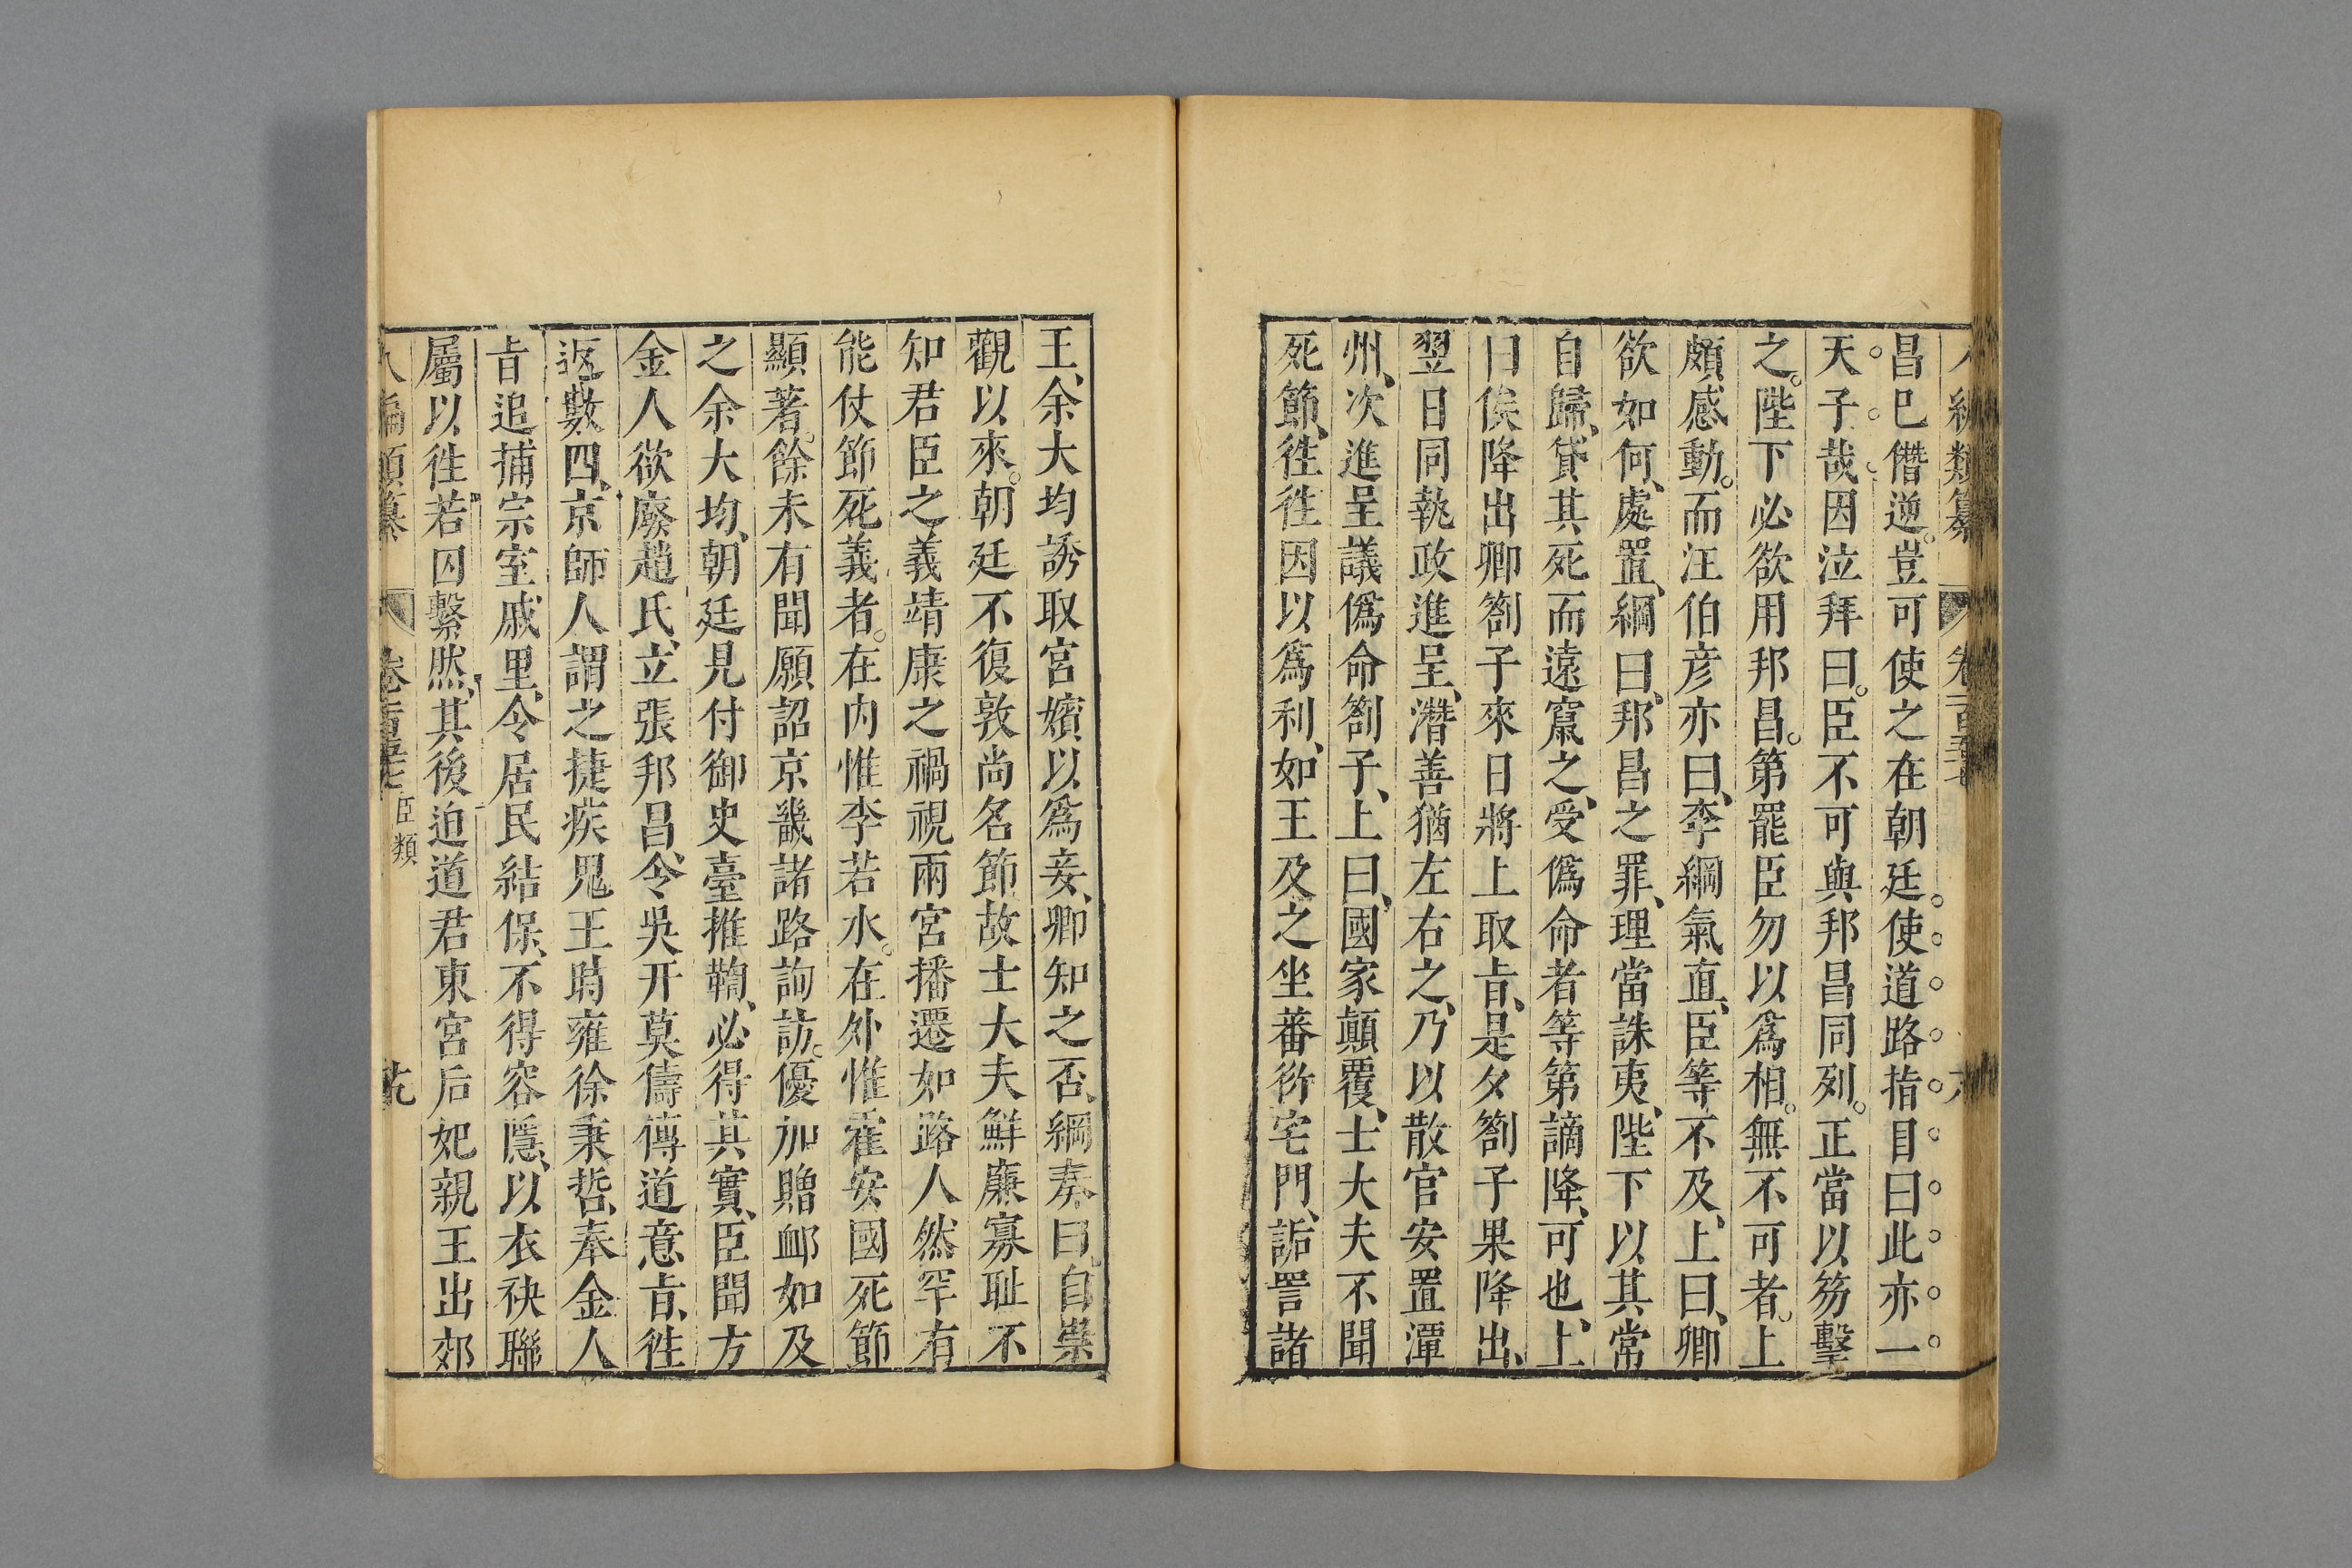 昌已僭逆。豈可使之在朝廷。使道路指目曰此亦一
天子哉。因泣拜曰。臣不可與邦昌同列。正當以笏擊
之。陛下必欲用邦昌。第罷臣勿以爲相。無不可者。上
頗感動。而汪伯彥亦曰、李綱氣直、臣等不及、上曰、卿
欲如何、處置、綱曰、邦昌之罪、理當誅夷、陛下以其常
自歸、貸其死而遠竄之、受僞命者等第謫降、可也、上
曰俟降出卿劄子來日將上取㫖、是夕劄子果降出、
翌日同執政進呈、潛善猶左右之、乃以散官安置潭
州、次進呈議僞命劄子、上曰、國家顛覆、士大夫不聞
死節、徃徃因以爲利、如王及之坐蕃衍宅門、詬詈諸
王、余大均誘取宮嬪以爲妾、卿知之否、綱奏曰、自崇
觀以來。朝廷不復敦尚名節故士大夫鮮廉寡耻不
知君臣之義靖康之禍視兩宮播遷如路人然罕有
能仗節死義者。在内惟李若水。在外惟霍安國死節
顯著。餘未有聞願詔京畿諸路詢訪。優加贈卹如及
之余大均、朝廷見付御史臺推鞫、必得其實、臣聞方
金人欲廢趙氏、立張邦昌、令吳幵莫儔傳道意㫖、徃
返數四、京師人謂之捷疾鬼王時雍徐秉哲、奉金人
㫖追捕宗室戚里、令居民結保、不得容隱、以衣袂聯
屬以徃若囚繫然、其後迫道君東宮后妃親王出郊
臣類